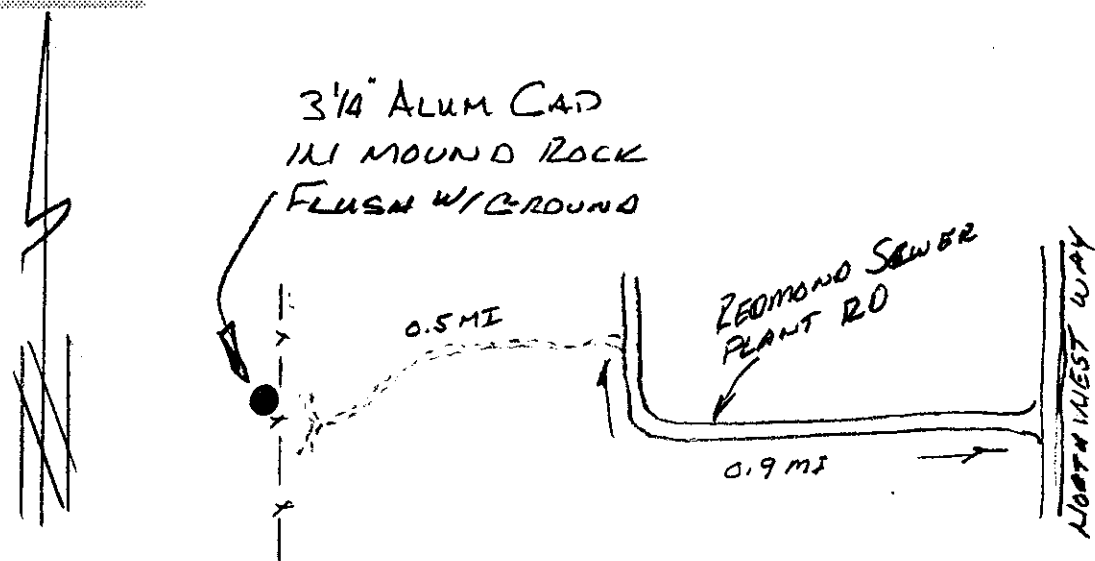 3 1/4" ALUM CAP
IN MOUND ROCK
FLUSH W/GROUND
0.5 MI
REDMOND SEWER
PLANT RD
0.9 MI
NORTHWEST WAY